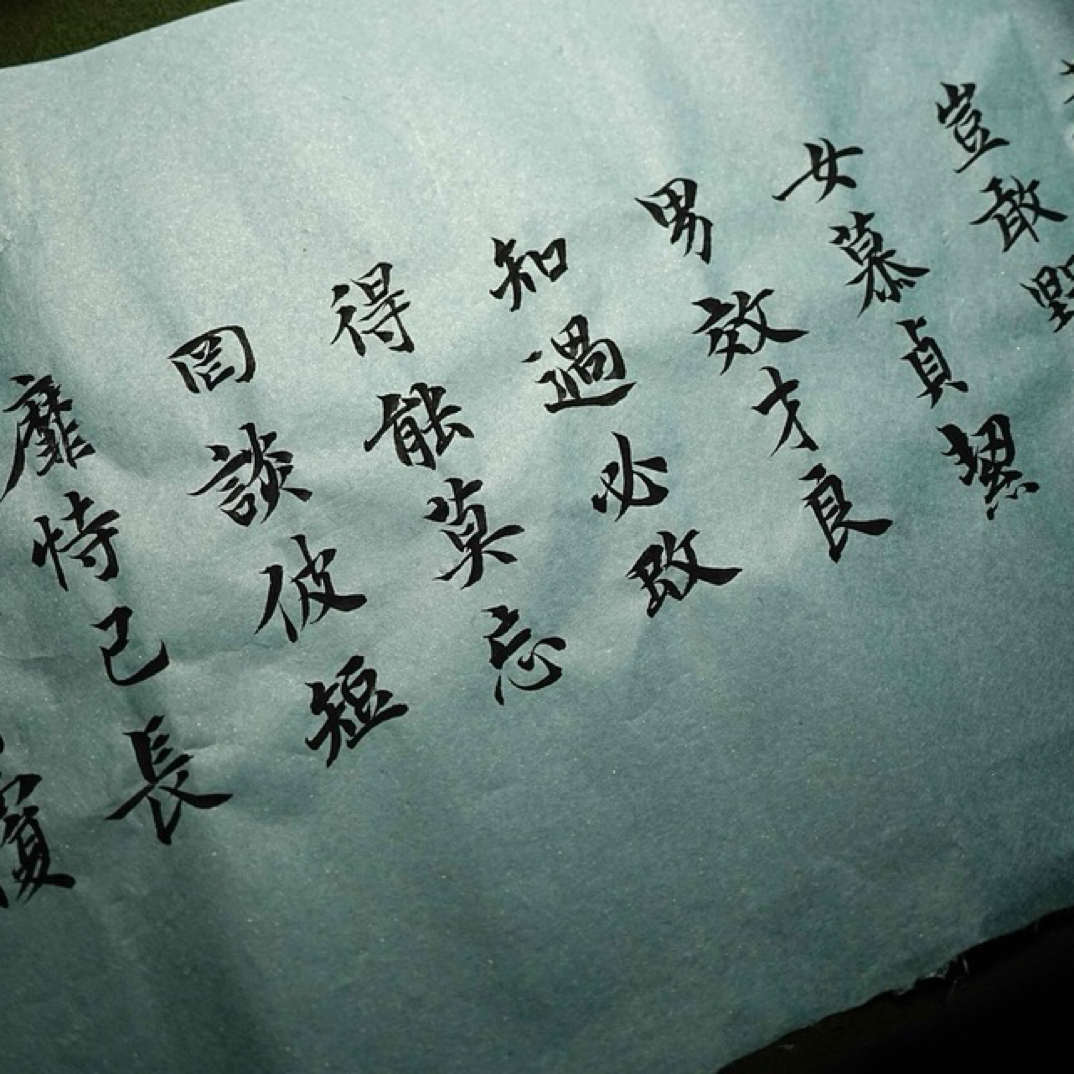 豈敢毀
女慕貞絜
男效才良
知過必改
得能莫忘
罔談彼短
靡恃己長
覆